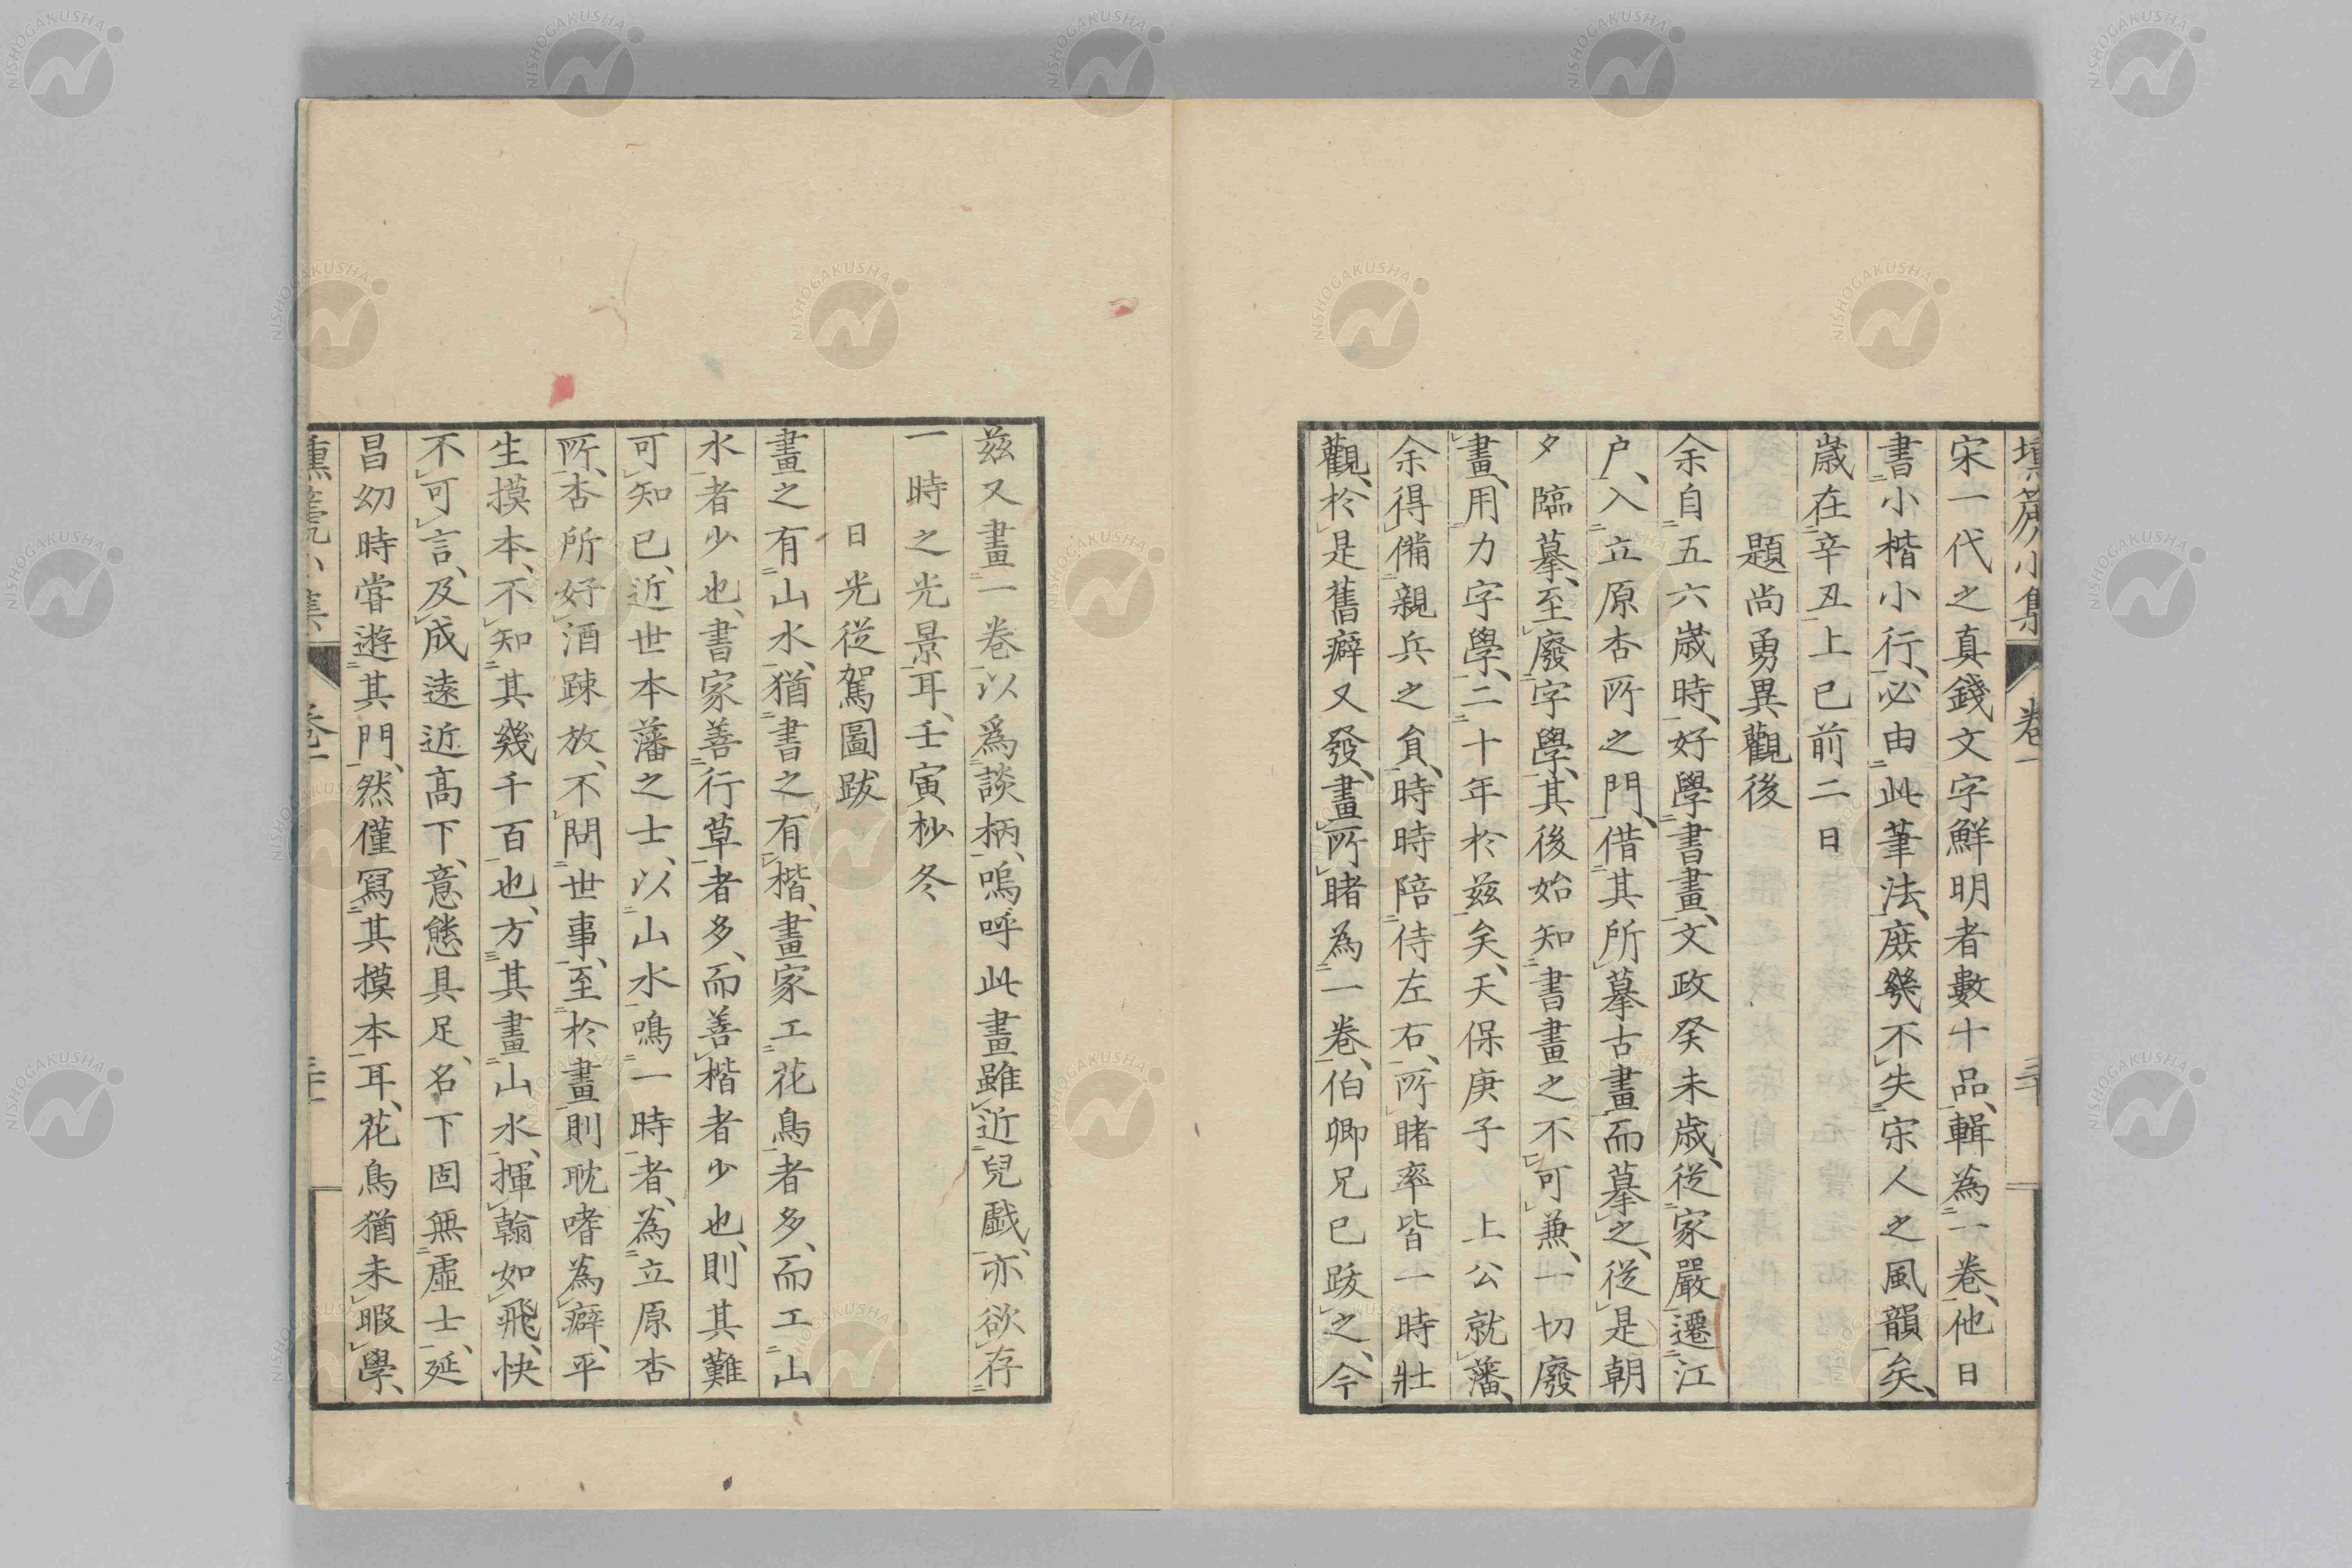 宋一代之真錢文字鮮明者數十品、輯為一卷、他日
書小楷小行、必由此筆法、庶幾不失宋人之風韻矣、
歲在辛丑上巳前二日
題尚勇異觀後
余自五六歲時、好學書畫、文政癸未歲、從家嚴遷江
戶、入立原杏所之門、借其所摹古畫而摹之、從是朝
夕臨摹、至廢字學、其後始知書畫之不可兼、一切廢
畫、用力字學、二十年於茲矣、天保庚子 上公就藩、
余得備親兵之負、時時陪侍左右、所睹率皆一時壯
觀、於是舊癖又發、畫所睹為一卷、伯卿兄已跋之、今
茲又畫一卷以爲談柄、嗚呼此畫雖近兒戲、亦欲存
一時之光景耳、壬寅杪冬
日光從駕圖跋
畫之有山水、猶書之有楷、畫家工花鳥者多、而工山
水者少也、書家善行草者多、而善楷者少也、則其難
可知已、近世本藩之士、以山水鳴一時者、為立原杏
所、杏所好酒踈放、不問世事、至於畫則耽嗜為癖、平
生摸本、不知其幾千百也、方其畫山水、揮翰如飛、快
不可言、及成遠近高下、意態具足、名下固無虛士、延
昌幼時嘗遊其門、然僅寫其摸本耳、花鳥猶未暇學、
壎箎小集 卷一
NISHOGAKUSHA